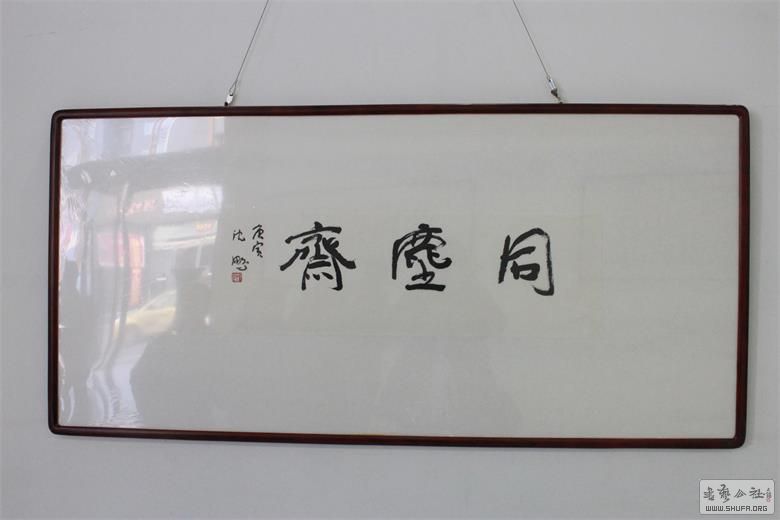 同塵齋
庚寅
沈鵬
书艺公社
WWW.SHUFA.ORG